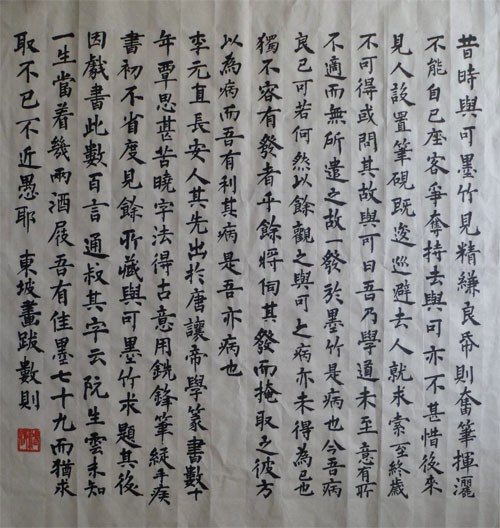 昔時與可墨竹見精縑良帋則奮筆揮灑
不能自已座客爭奪持去與可亦不甚惜後來
見人設置筆硯既逡巡避去人就求索至終歲
不可得或問其故與可曰吾乃學道未至意有所
不適而無所遣之故一發於墨竹是病也今吾病
良已可若何然以餘觀之與可之病亦未得為已也
獨不容有發者乎餘將伺其發而掩取之彼方
以為病而吾有利其病是吾亦病也
李元直長安人其先出於唐讓帝學篆書數十
年覃思甚苦曉字法得古意用銳鋒筆縱手疾
書初不省度見餘所藏與可墨竹求題其後
因戲書此數百言通叔其字云阮生雲未知
一生當着幾兩酒屐吾有佳墨七十九而猶求
取不已不近愚耶 東坡畫跋數則